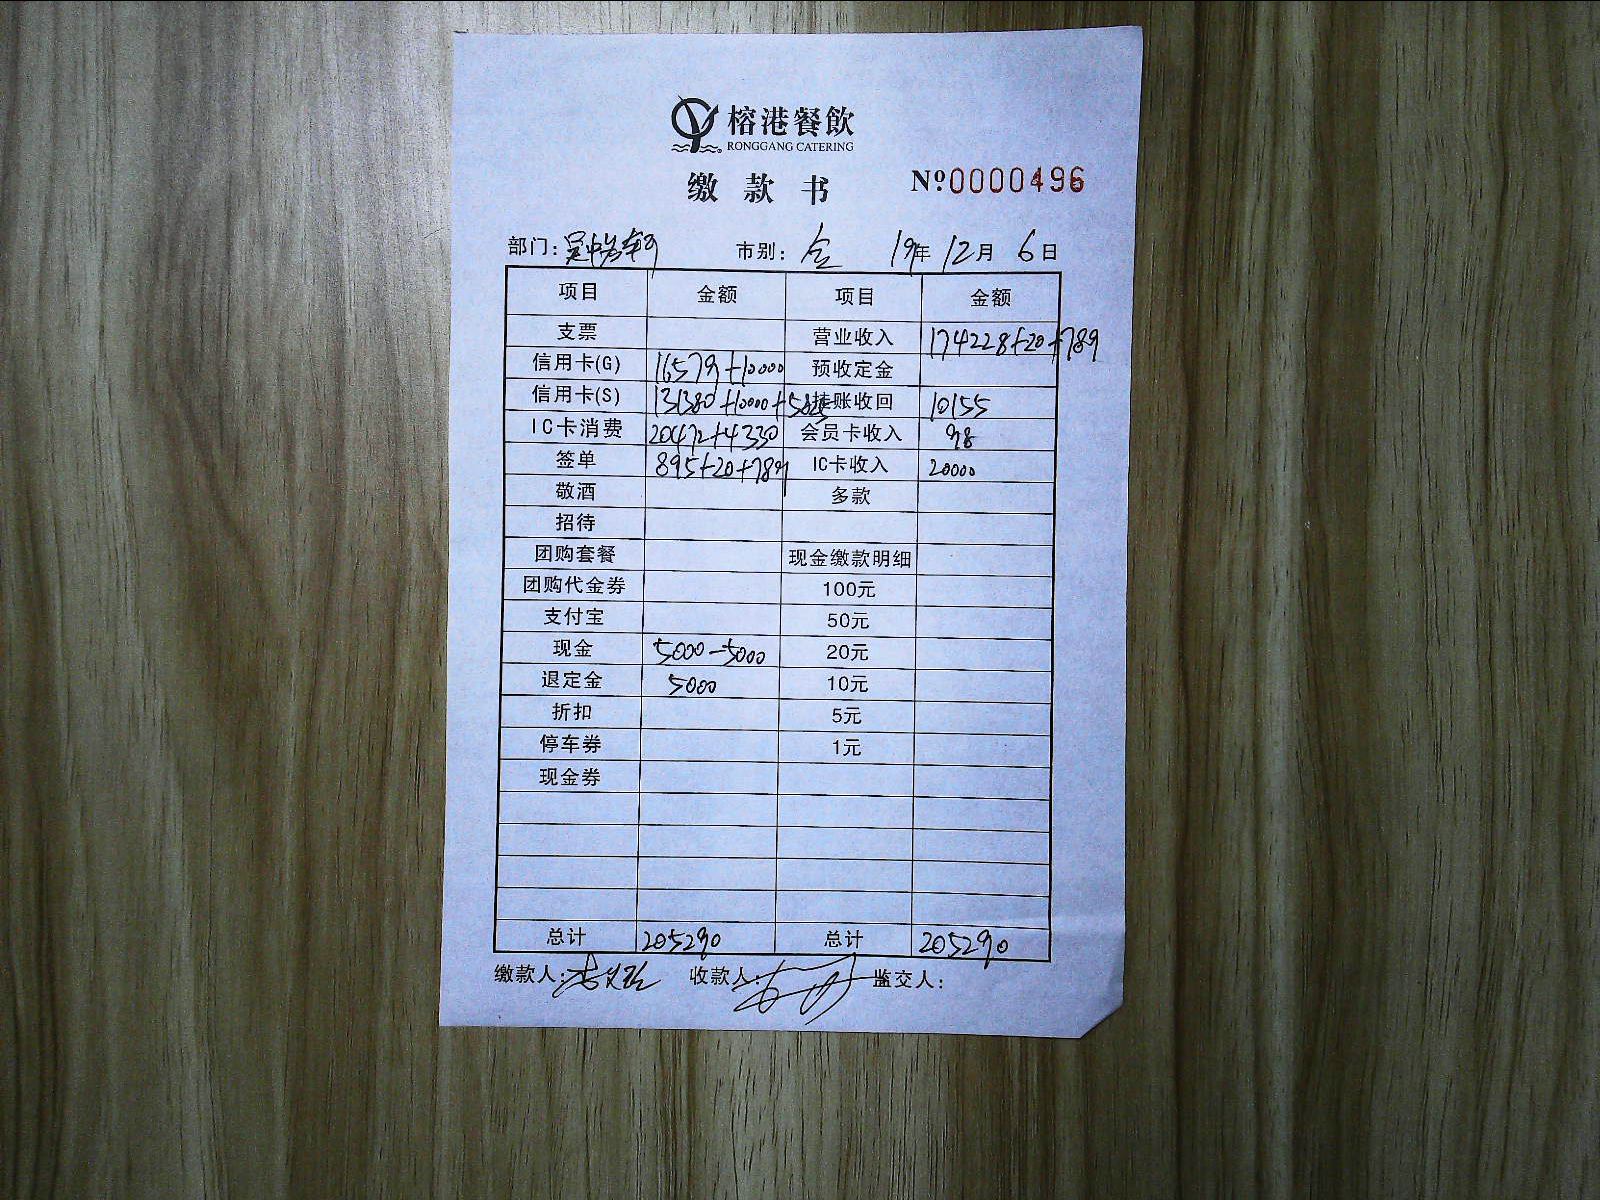 榕港餐飲
RONGGANG CATERING
缴款书 Nº0000496
部门: 市别: 全 19年12月6日
项目 金额 项目 金额
支票 营业收入 174228+20+789
信用卡(G) 16579+10000 预收定金
信用卡(S) 131380+10000+5825 挂账收回 10155
IC卡消费 20472+4330 会员卡收入 98
签单 895+20+789 IC卡收入 20000
敬酒 多款
招待
团购套餐 现金缴款明细
团购代金券 100元
支付宝 50元
现金 5000-5000 20元
退定金 5000 10元
折扣 5元
停车券 1元
现金券
总计 205290 总计 205290
缴款人: 收款人: 监交人: